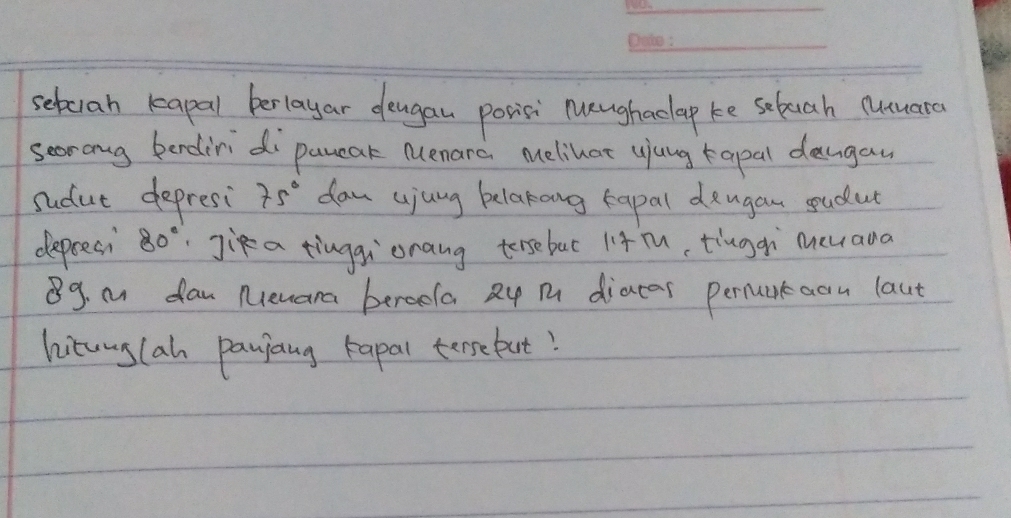 No.
Date :
sebuah kapal berlayar dengan posisi menghadap ke sebuah menara
seorang berdiri di puncak menara melihat ujung kapal dengan
sudut depresi 75° dan ujung belakang kapal dengan sudut
depresi 80°. Jika tinggi orang tersebut 1.7 m, tinggi menara
89. m dan menara berada 24 m diatas permukaan laut
hitunglah panjang kapal tersebut !